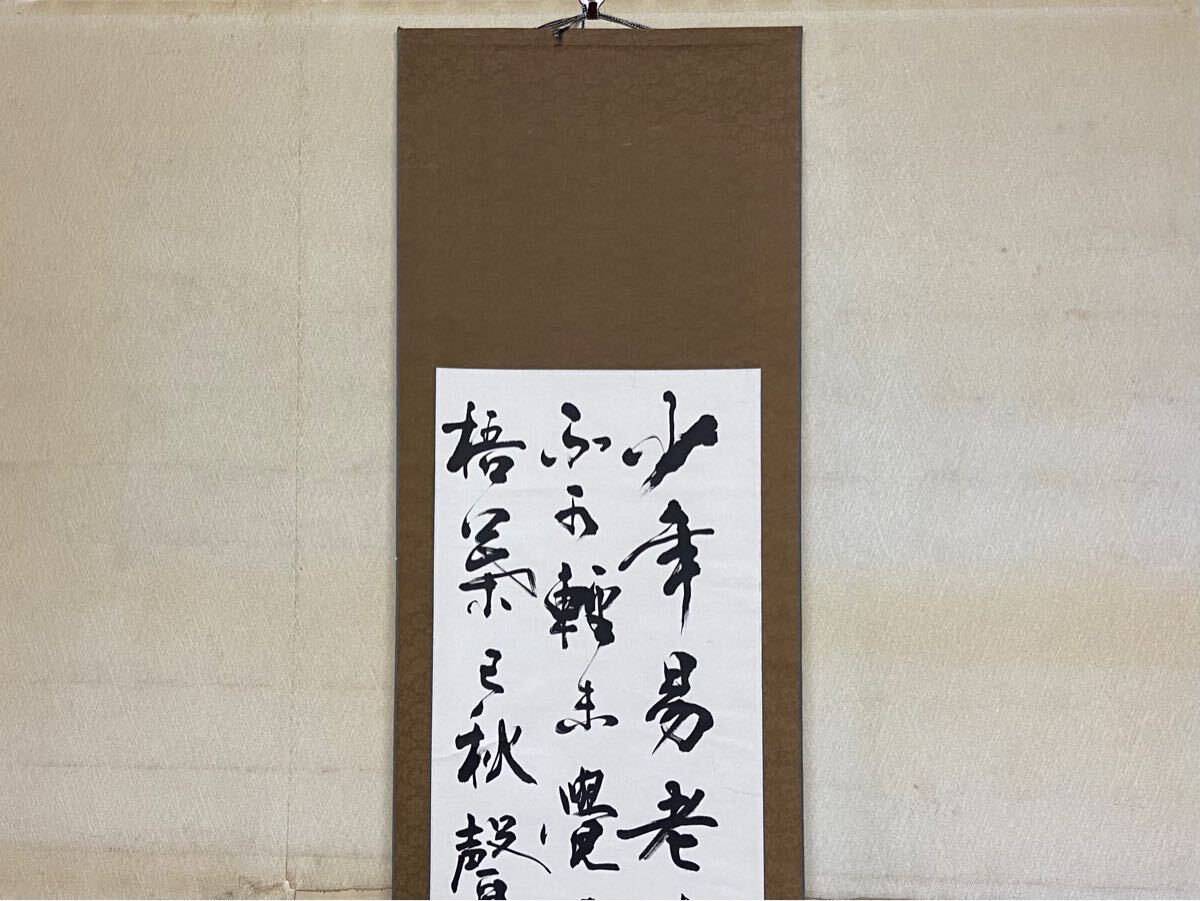 少年易老
不可輕未覺
梧葉已秋聲